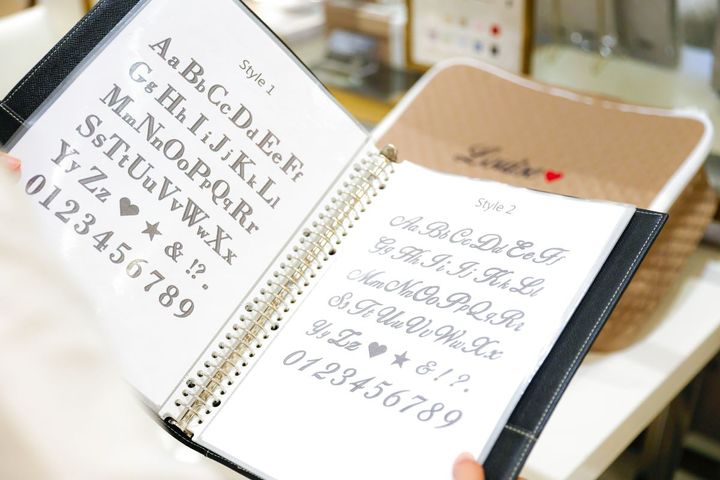 Style 1
AaBbCcDdEeFf
GgHhIiJjKkLl
MmNnOoPpQqRr
SsTtUuVvWwXx
YyZz ♥ ★ & !? .
0123456789
Style 2
AaBbCcDdEeFf
GgHhIiJjKkLl
MmNnOoPpQqRr
SsTtUuVvWwXx
YyZz ♥ ★ & ! ? .
0123456789